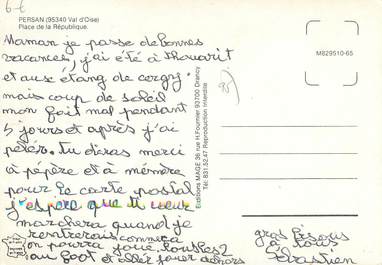 6-€
PERSAN (95340 Val d'Oise)
Place de la République.
Maman je passe de bonnes
vacances, j'ai été à
et aux étang de cergy
mais coup de soleil
mon fait mal pendant
5 jours et après j'ai
pélér. Tu diras merci
a pépère et à mémère
pour le carte postal
j'espère que ti
marchera quand je
rentrerais
on pourra joué
au foot et allér jouer dehors
gros bisous
à tous
Sébastien
Editions MAGE 36 rue H.Fournier 93700 Drancy
Tél: 831.52.47 Reproduction interdite
M829510-65
95)